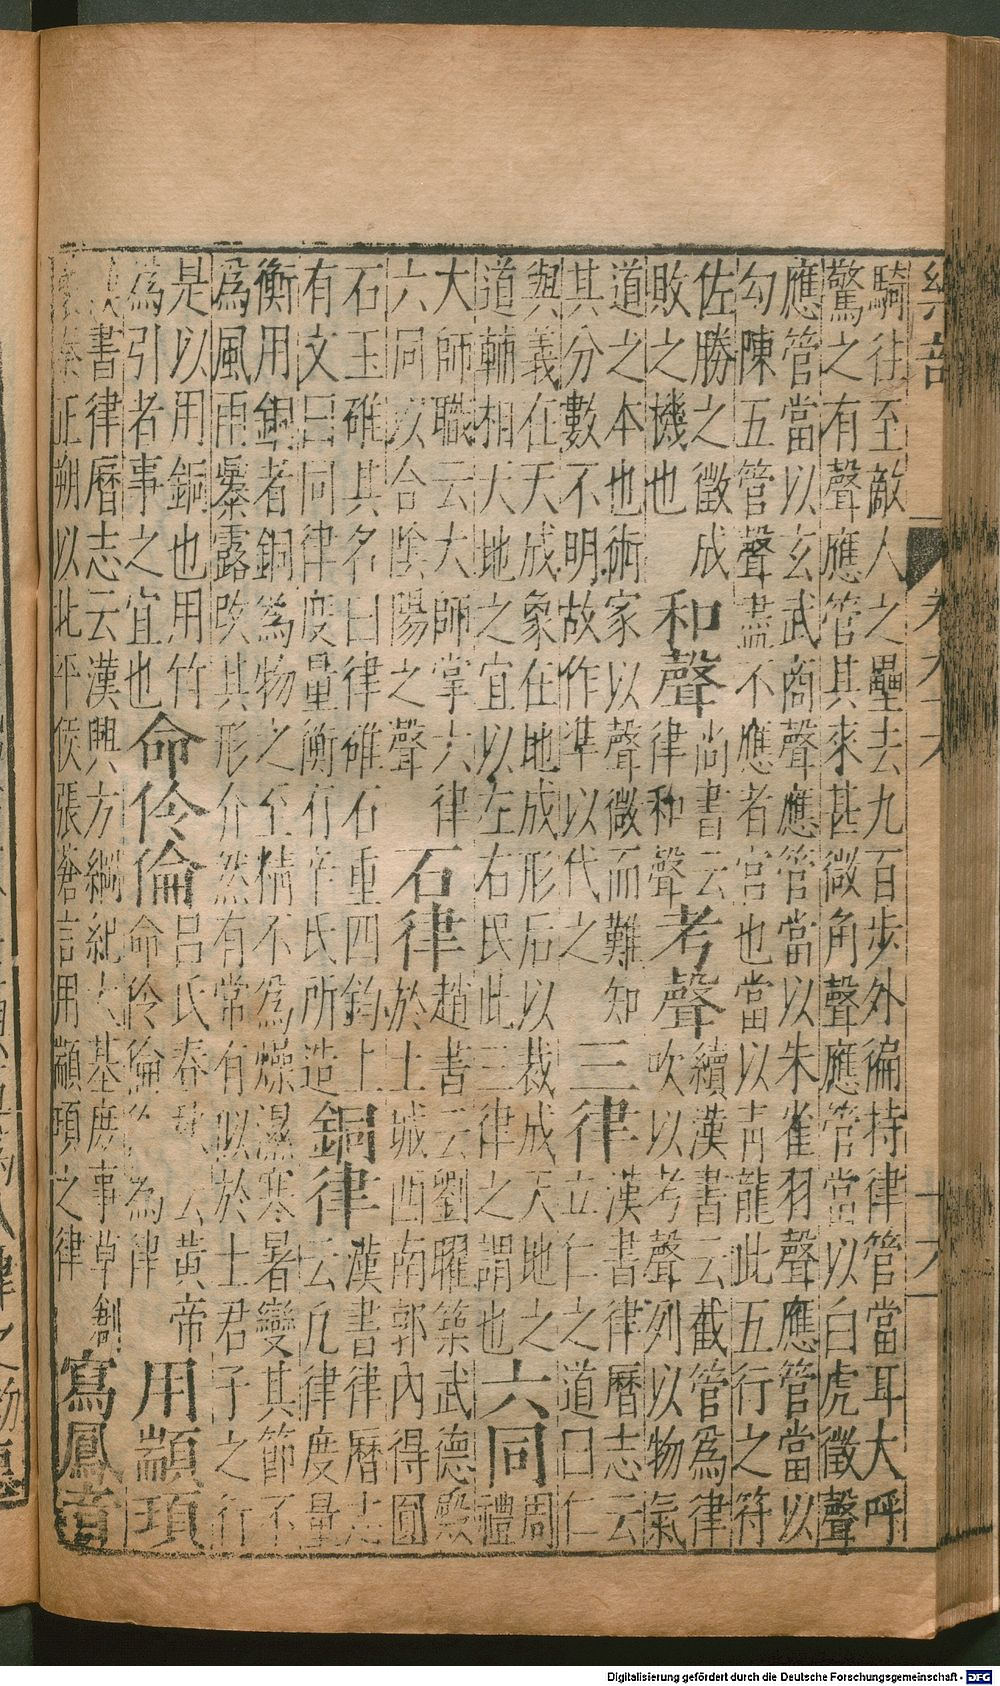 樂部
卷六十六
十六
騎往至敵人之壘去九百步外徧持律管當耳大呼
驚之有聲應管其來甚微角聲應管當以白虎徵聲
應管當以玄武商聲應管當以朱雀羽聲應管當以
勾陳五管聲盡不應者宮也當以靑龍此五行之符
佐勝之徵成
敗之機也
和聲
尚書云
律和聲
考聲
續漢書云截管爲律
吹以考聲列以物氣
道之本也術家以聲微而難知
其分數不明故作凖以代之
三律
漢書律曆志云
立仁之道曰仁
與義在天成象在地成形后以裁成天地之
道輔相天地之宜以左右民此三律之謂也
六同
周
禮
大師職云大師掌六律
六同以合陰陽之聲
石律
趙書云劉曜築武德殿
於土城西南郭內得圓
石玉碓其名曰律碓石重四鈞上
有文呂同律度量衡有辛氏所造
銅律
漢書律曆志
云凡律度量
衡用銅者銅爲物之至精不爲燥濕寒暑變其節不
爲風雨暴露改其形介然有常有似於士君子之行
是以用銅也用竹
爲引者事之宜也
命伶倫
呂氏春秋云黃帝
命伶倫作爲律
用顓頊
漢書律曆志云漢興方綱紀大基庶事草創
襲秦正朔以北平侯張蒼言用顓頊之律
寫鳳音
Digitalisierung gefördert durch die Deutsche Forschungsgemeinschaft - DFG